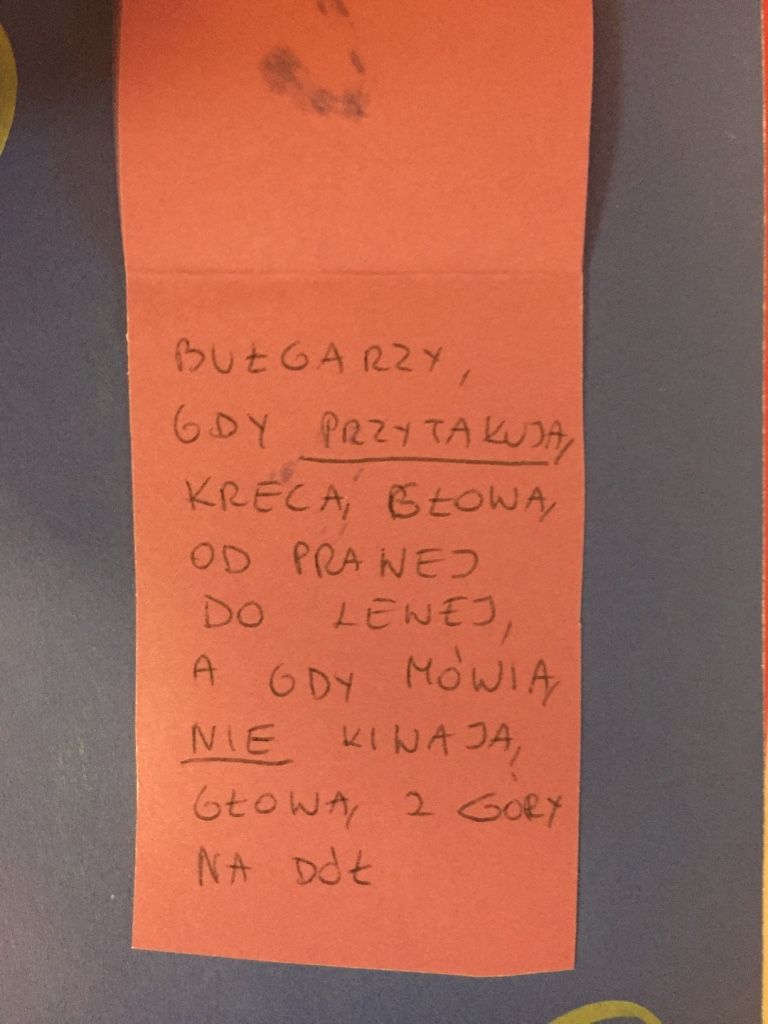 BUŁGARZY,
GDY PRZYTAKUJĄ,
KRĘCĄ GŁOWĄ
OD PRAWEJ
DO LEWEJ,
A GDY MÓWIĄ
NIE KIWAJĄ
GŁOWĄ Z GÓRY
NA DÓŁ